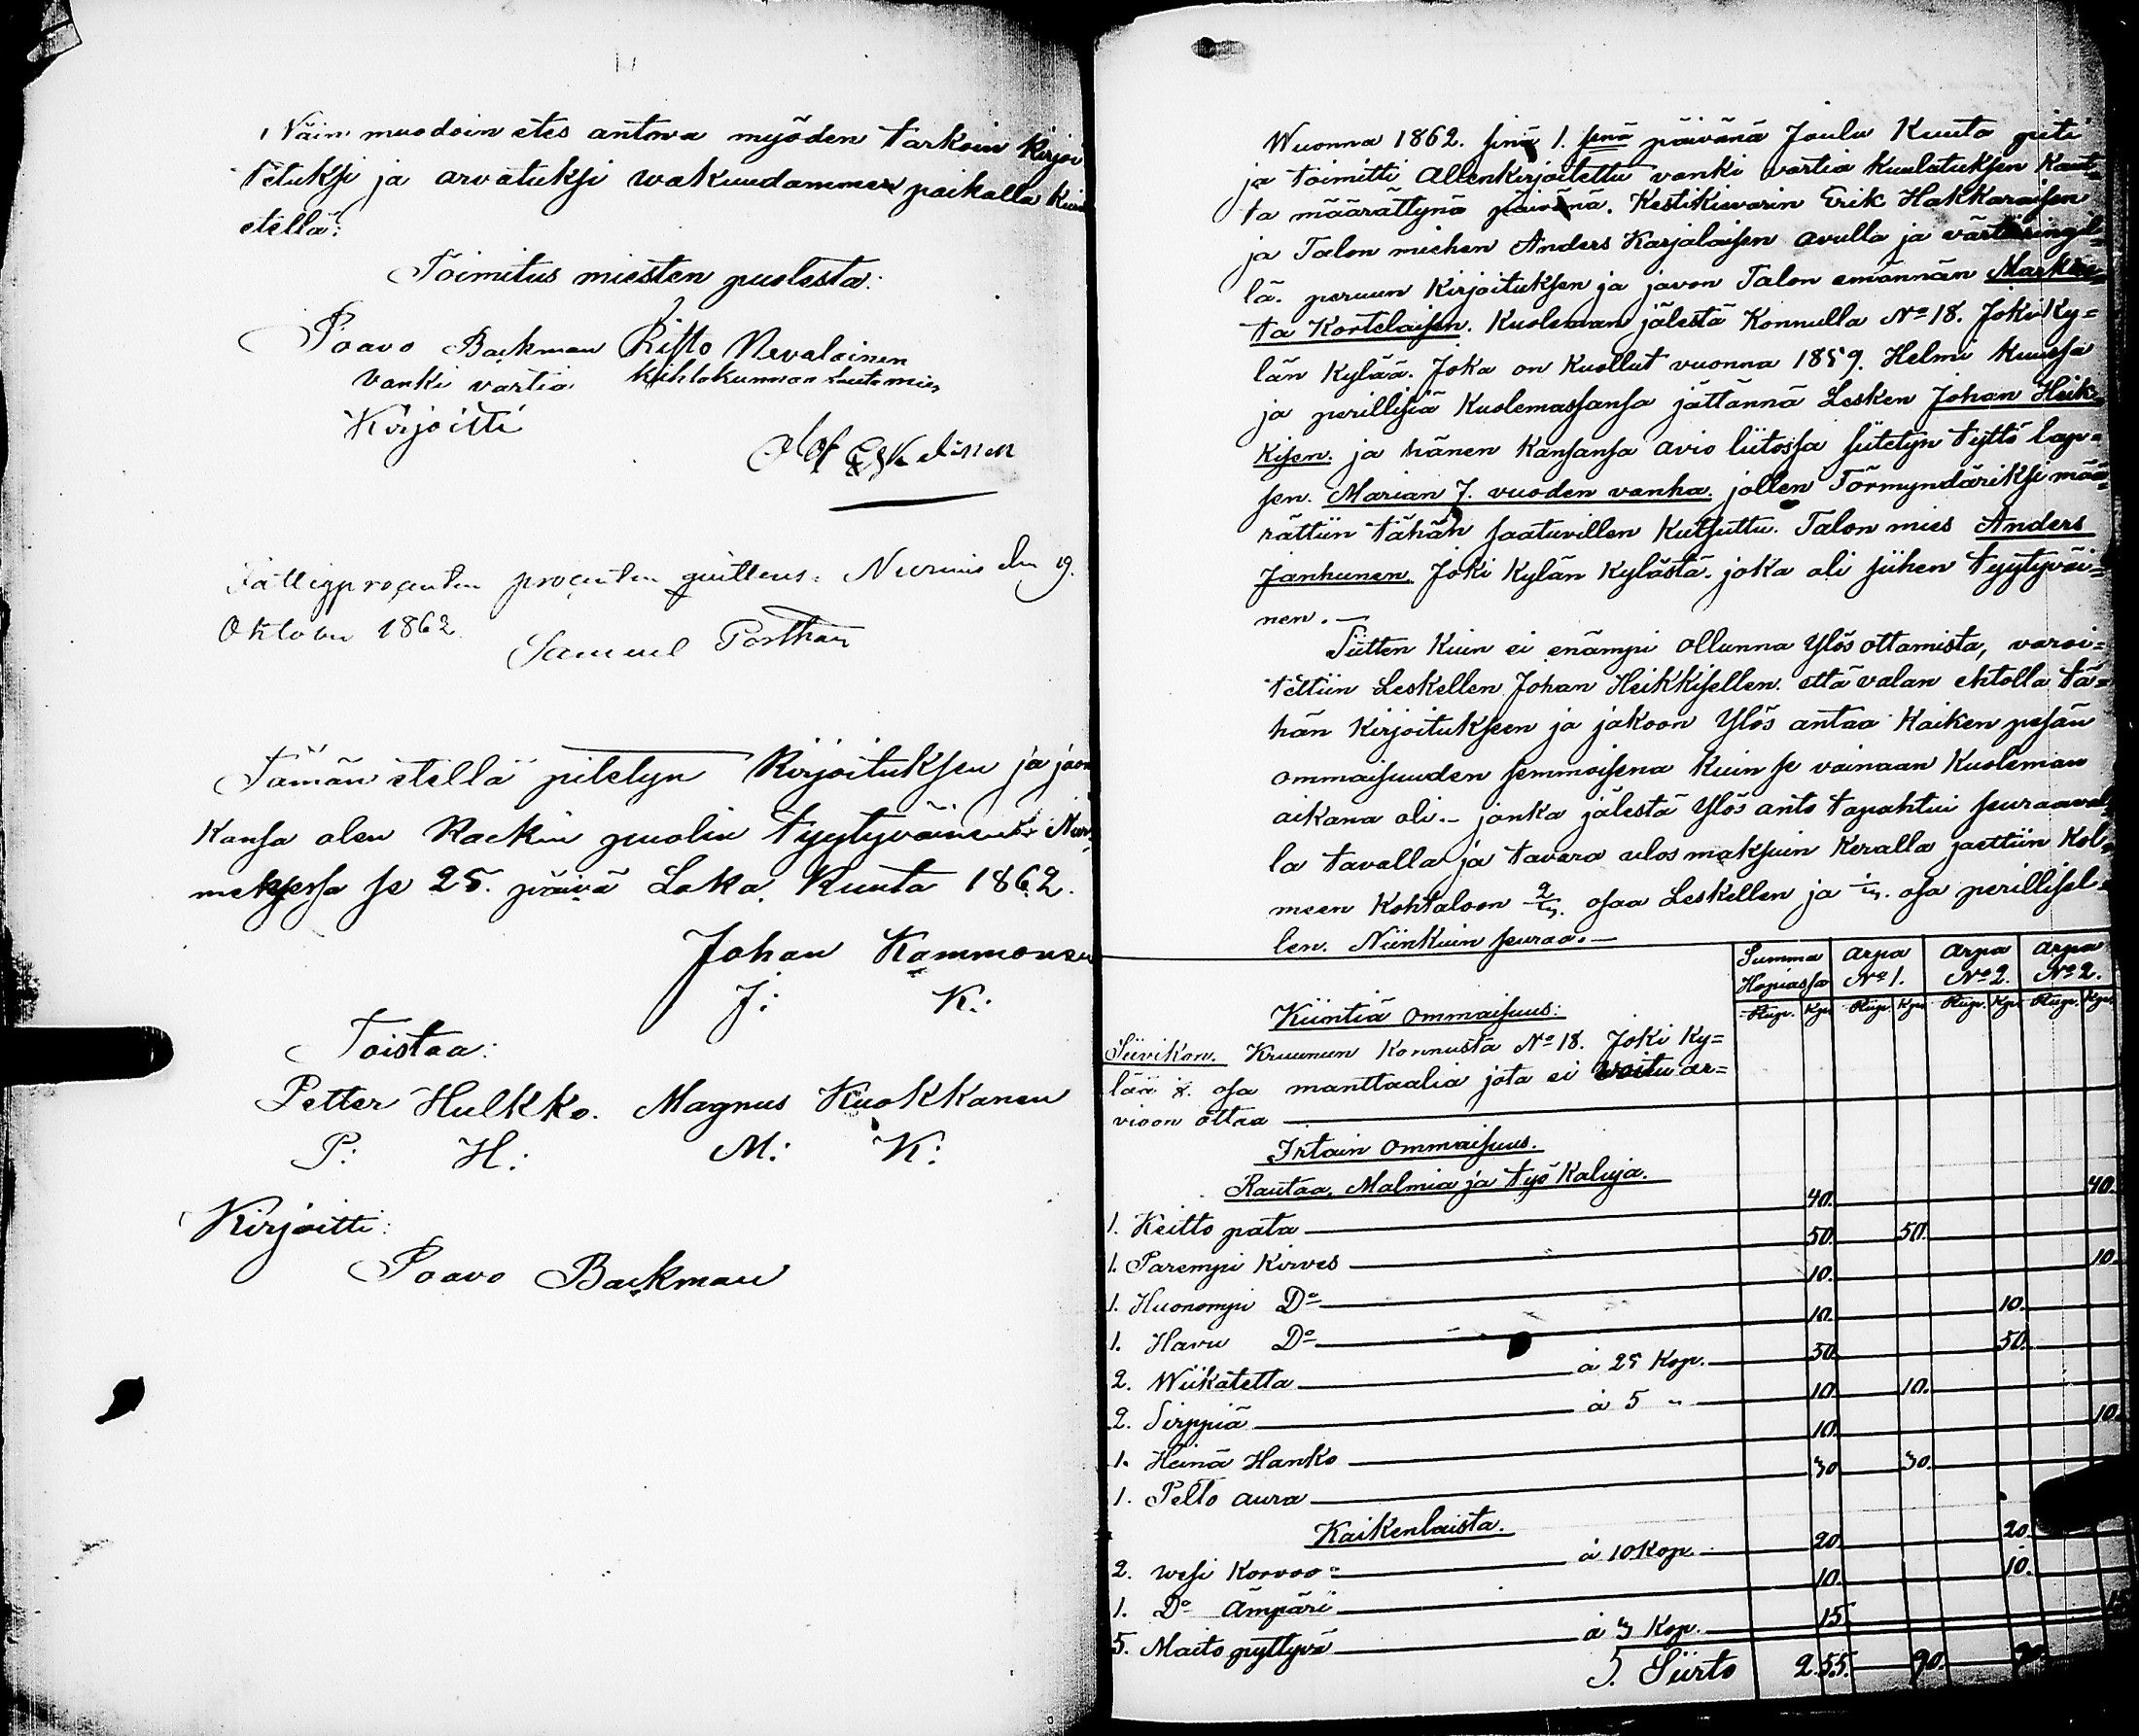 Näin muodoin etes antava myöden tarkoin Kirjoi
tetuksi ja arvatuksi wakuudammen paikalla Kuin
etellä:
Toimitus miesten puolesta:
Paavo Backman Risto Nevalainen
Vanki vartia Kihlakunnan Lautamies
Kirjoitti
Olof Eskelinen
Fattigprocenten procenten quitteras: Nurmis den 19.
Oktober 1862
Samuel Porthan
Tämän etellä pitetyn Kirjoituksen ja javon
Kansa olen Kaekin puolin tyytyväinen Nur
meksessa se 25. päivä Loka Kuuta 1862.
Johan Kammonen
J: K:
Toistaa:
Petter Hulkko. Magnus Kuokkanen
P: H: M: K:
Kirjoitti:
Paavo Backman
Wuonna 1862. sinä 1. senä päivänä Joulu Kuuta piti
ja toimitti Allenkirjoitettu vanki vartia Kuulatuksen Kaut-
ta määrättynä päivänä. Kestikievarin Erik Hakkaraisen
ja Talon miehen Anders Karjalaisen avulla ja värteeringil-
lä. peruun Kirjoituksen ja javon Talon emännän Markee-
ta Kortelaisen. Kuoleman jälestä Konnulla No 18. Joki Ky=
län Kylää. Joka on Kuollut vuonna 1859. Helmi Kuussa
ja perillisiä Kuolemassansa jättännä Lesken Johan Heik-
kisen. ja hänen Kansansa avio liitossa siitetyn tyttö lap=
sen. Marian 7. vuoden vanha. jollen Törmyndäriksi mää-
rättiin tähän saatuvillen Kutsuttu. Talon mies Anders
Janhunen. Joki Kylän Kylästä. joka oli siihen tyytyväi=
nen.—
Siitten Kuin ei enämpi ollunna Ylös ottamista, varoi=
tettiin Leskellen Johan Heikkisellen. että valan ehtolla tä=
hän Kirjoitukseen ja jakoon Ylös antaa Kaiken pesän
ommaisuuden semmoisena Kuin se vainaan Kuoleman
aikana oli.— janka jälestä Ylös anto tapahtui seuraaval-
la tavalla ja tavara ulos maksuin Keralla jaettiin Kol-
meen Kohtaloon 2/3. osaa Leskellen ja 1/3. osa perillisel-
len. Niinkuin seuraa.—
Summa Hopiassa Arpa No 1. Arpa No 2. Arpa No 2.
Rup. Kp. Rup. Kp. Rup. Kp. Rup. Kp.
Kiintiä Ommaisuus:
Siivikon. Kruunun Konnusta No 18. Joki Ky=
län osa manttaalia jota ei Voitu ar=
vioon ottaa
Irtain Ommaisuus.
Rautaa, Malmia ja työ Kaluja.
1. Keitto pata 40. 40.
1. Parempi Kirves 50. 50.
1. Huonompi Do 10. 10.
1. Havu Do 10. 10.
2. Wiikatetta à 25 Kop. 50. 50.
2. Sirppiä à 5 " 10. 10.
1. Heinä Hanko 10. 10.
1. Pelto aura 30 30.
Kaikenlaista.
2. wesi Korvoo à 10 Kop. 20. 20.
1. Do Ämpäri 10. 10.
5. Maito pyttyvä à 3 Kop. 15. 15
Siirto 2 55. 90. 90